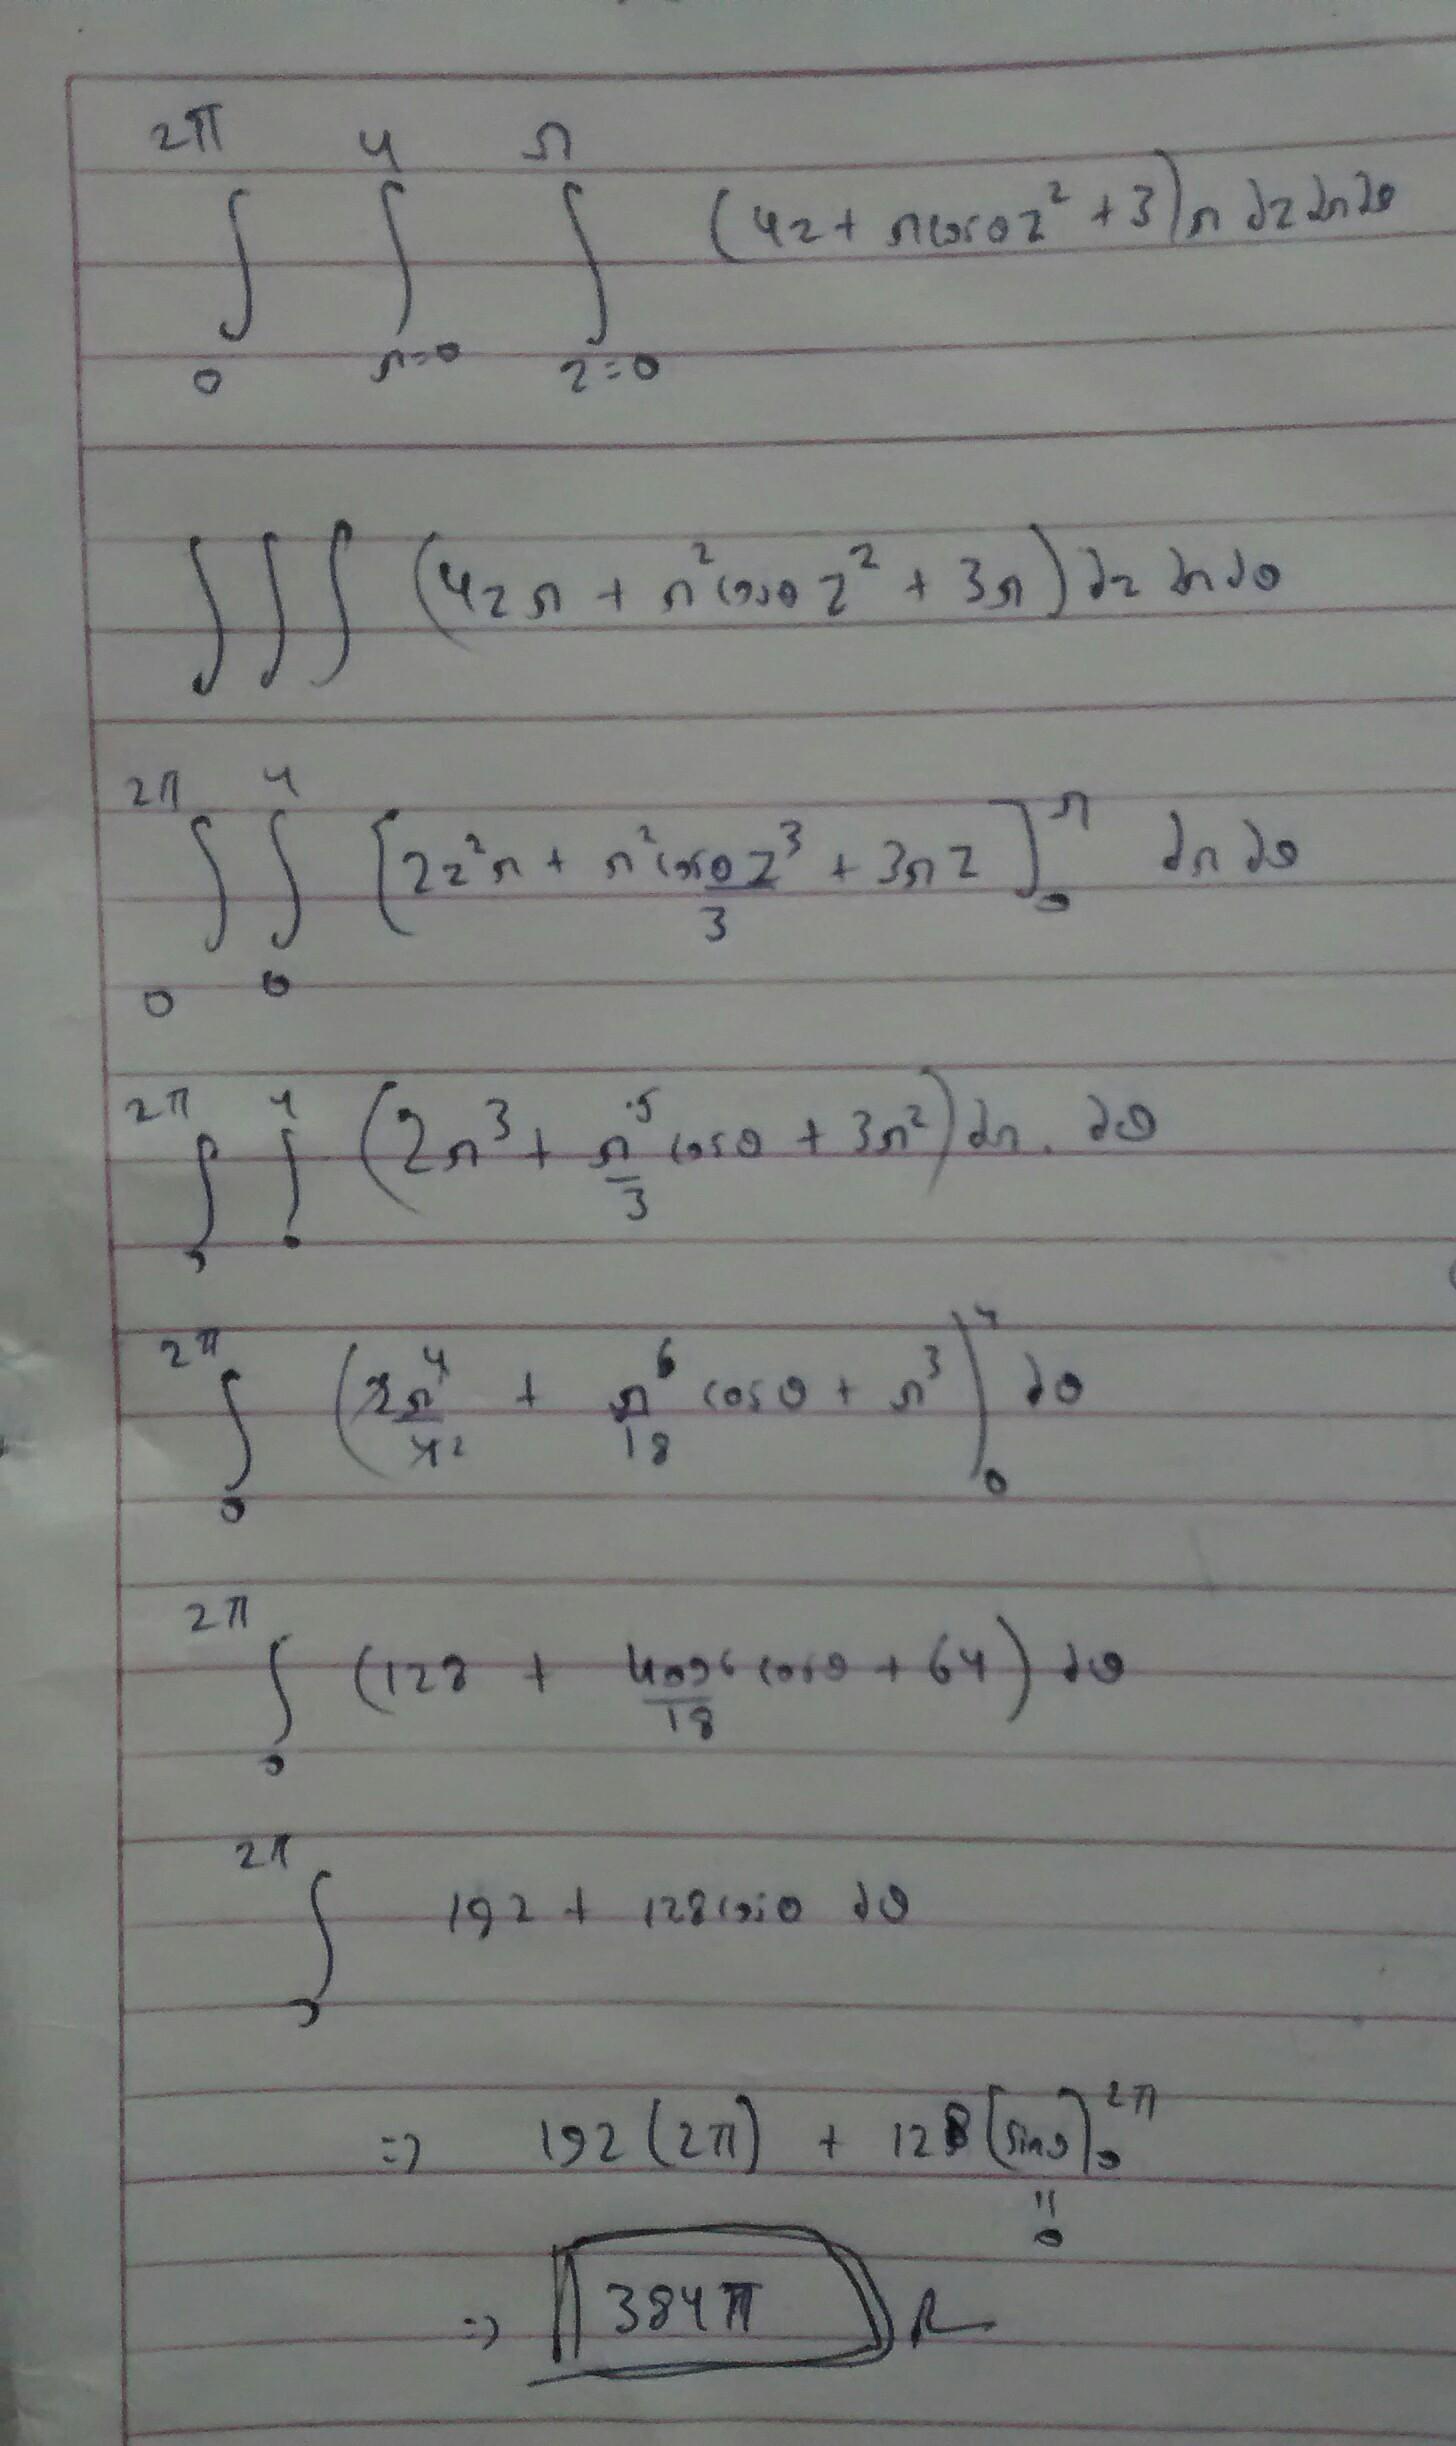 ∫₀^{2π} ∫_{r=0}^{4} ∫_{z=0}^{r} (4z + r cosθ z² + 3) r dz dr dθ
∫∫∫ (4zr + r² cosθ z² + 3r) dz dr dθ
∫₀^{2π} ∫₀^{4} [2z²r + r² cosθ z³/3 + 3rz]₀^{r} dr dθ
∫₀^{2π} ∫₀^{4} (2r³ + r⁵/3 cosθ + 3r²) dr. dθ
∫₀^{2π} (2r⁴/4 2 + r⁶/18 cosθ + r³)₀^{4} dθ
∫₀^{2π} (128 + 4096/18 cosθ + 64) dθ
∫₀^{2π} 192 + 128 cosθ dθ
=> 192(2π) + 128[sinθ]₀^{2π}
"
0
=> 384π